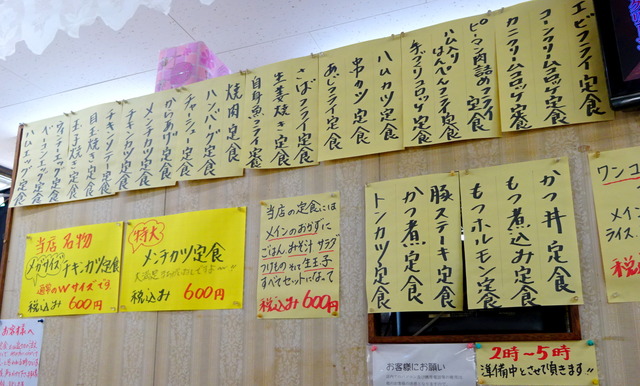 エビフライ定食
コーンクリームコロッケ定食
カニクリームコロッケ定食
ピーマン肉詰めフライ定食
ハム入りはんぺんフライ定食
手づくりコロッケ定食
ハムカツ定食
串カツ定食
あじフライ定食
さばフライ定食
生姜焼き定食
白身魚フライ定食
焼肉定食
ハンバーグ定食
チャーシュー定食
からあげ定食
メンチカツ定食
チキンカツ定食
チキンソテー定食
目玉焼き定食
玉子焼き定食
ウィンナーエッグ定食
ベーコンエッグ定食
ハムエッグ定食
かつ丼定食
もつ煮込み定食
もつホルモン定食
豚ステーキ定食
かつ煮定食
トンカツ定食
当店名物
メガサイズ チキンカツ定食
通常のWサイズです
税込み600円
特大
メンチカツ定食
税込み 600円
当店の定食には
メインのおかずに
ごはん、みそ汁 サラダ
つけもの そして生玉子
すべてセットになって
税込み600円
ワンコ
メイン
ライス
税込
お客様へ
お客様にお願い
2時〜5時
準備中とさせて頂きます!!